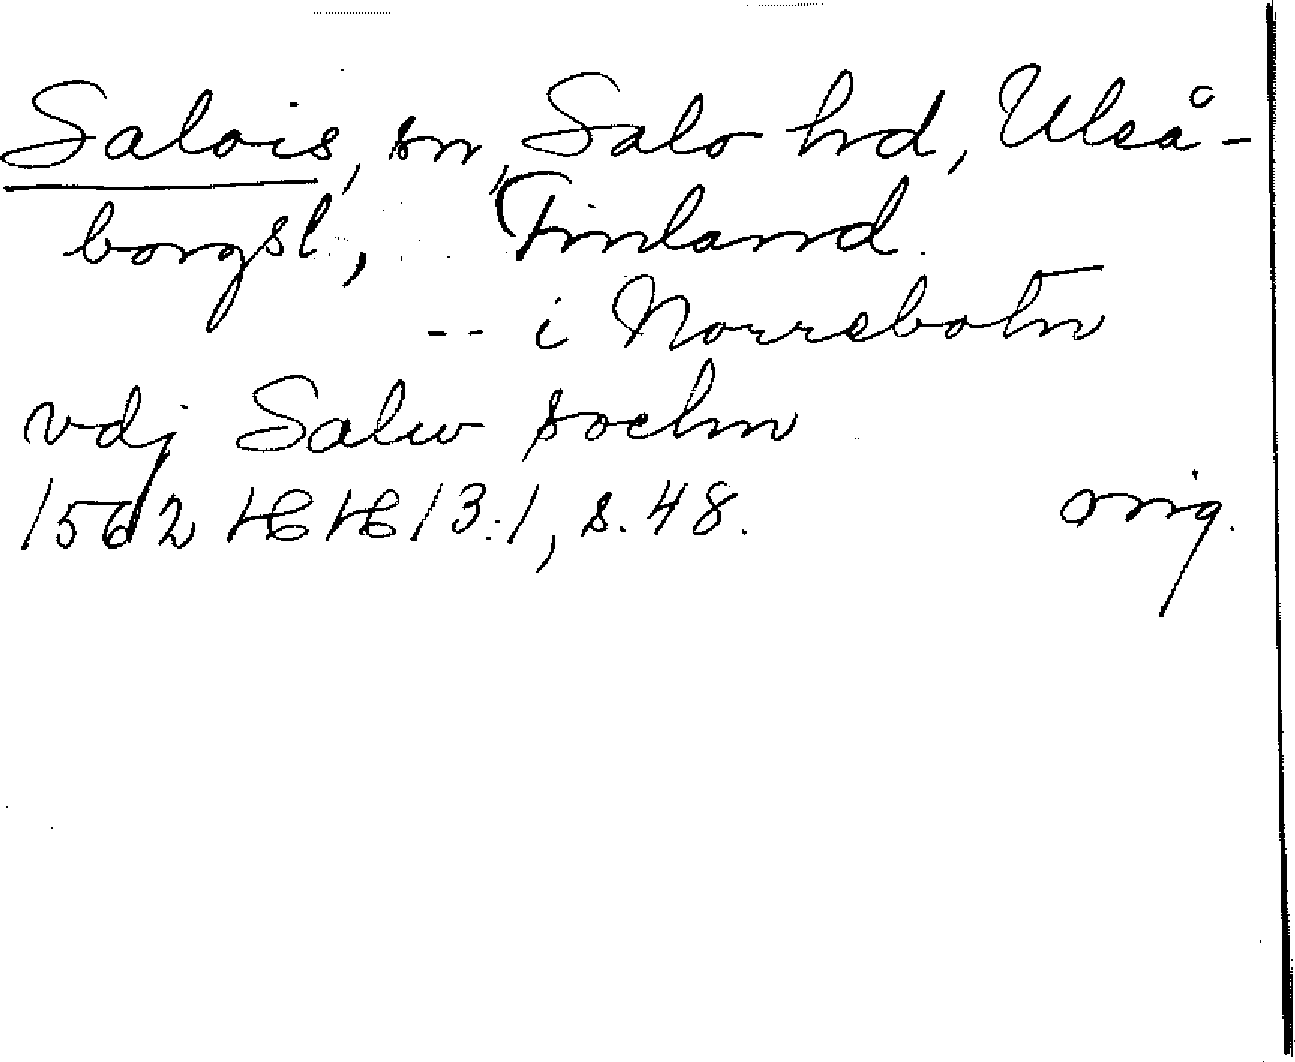 Salois, sn, Salo hrd, Uleå-
borgsl, Finland.
-- i Norrebotn
vdj Salw sochn
1562 HH 13:1, s. 48. orig.